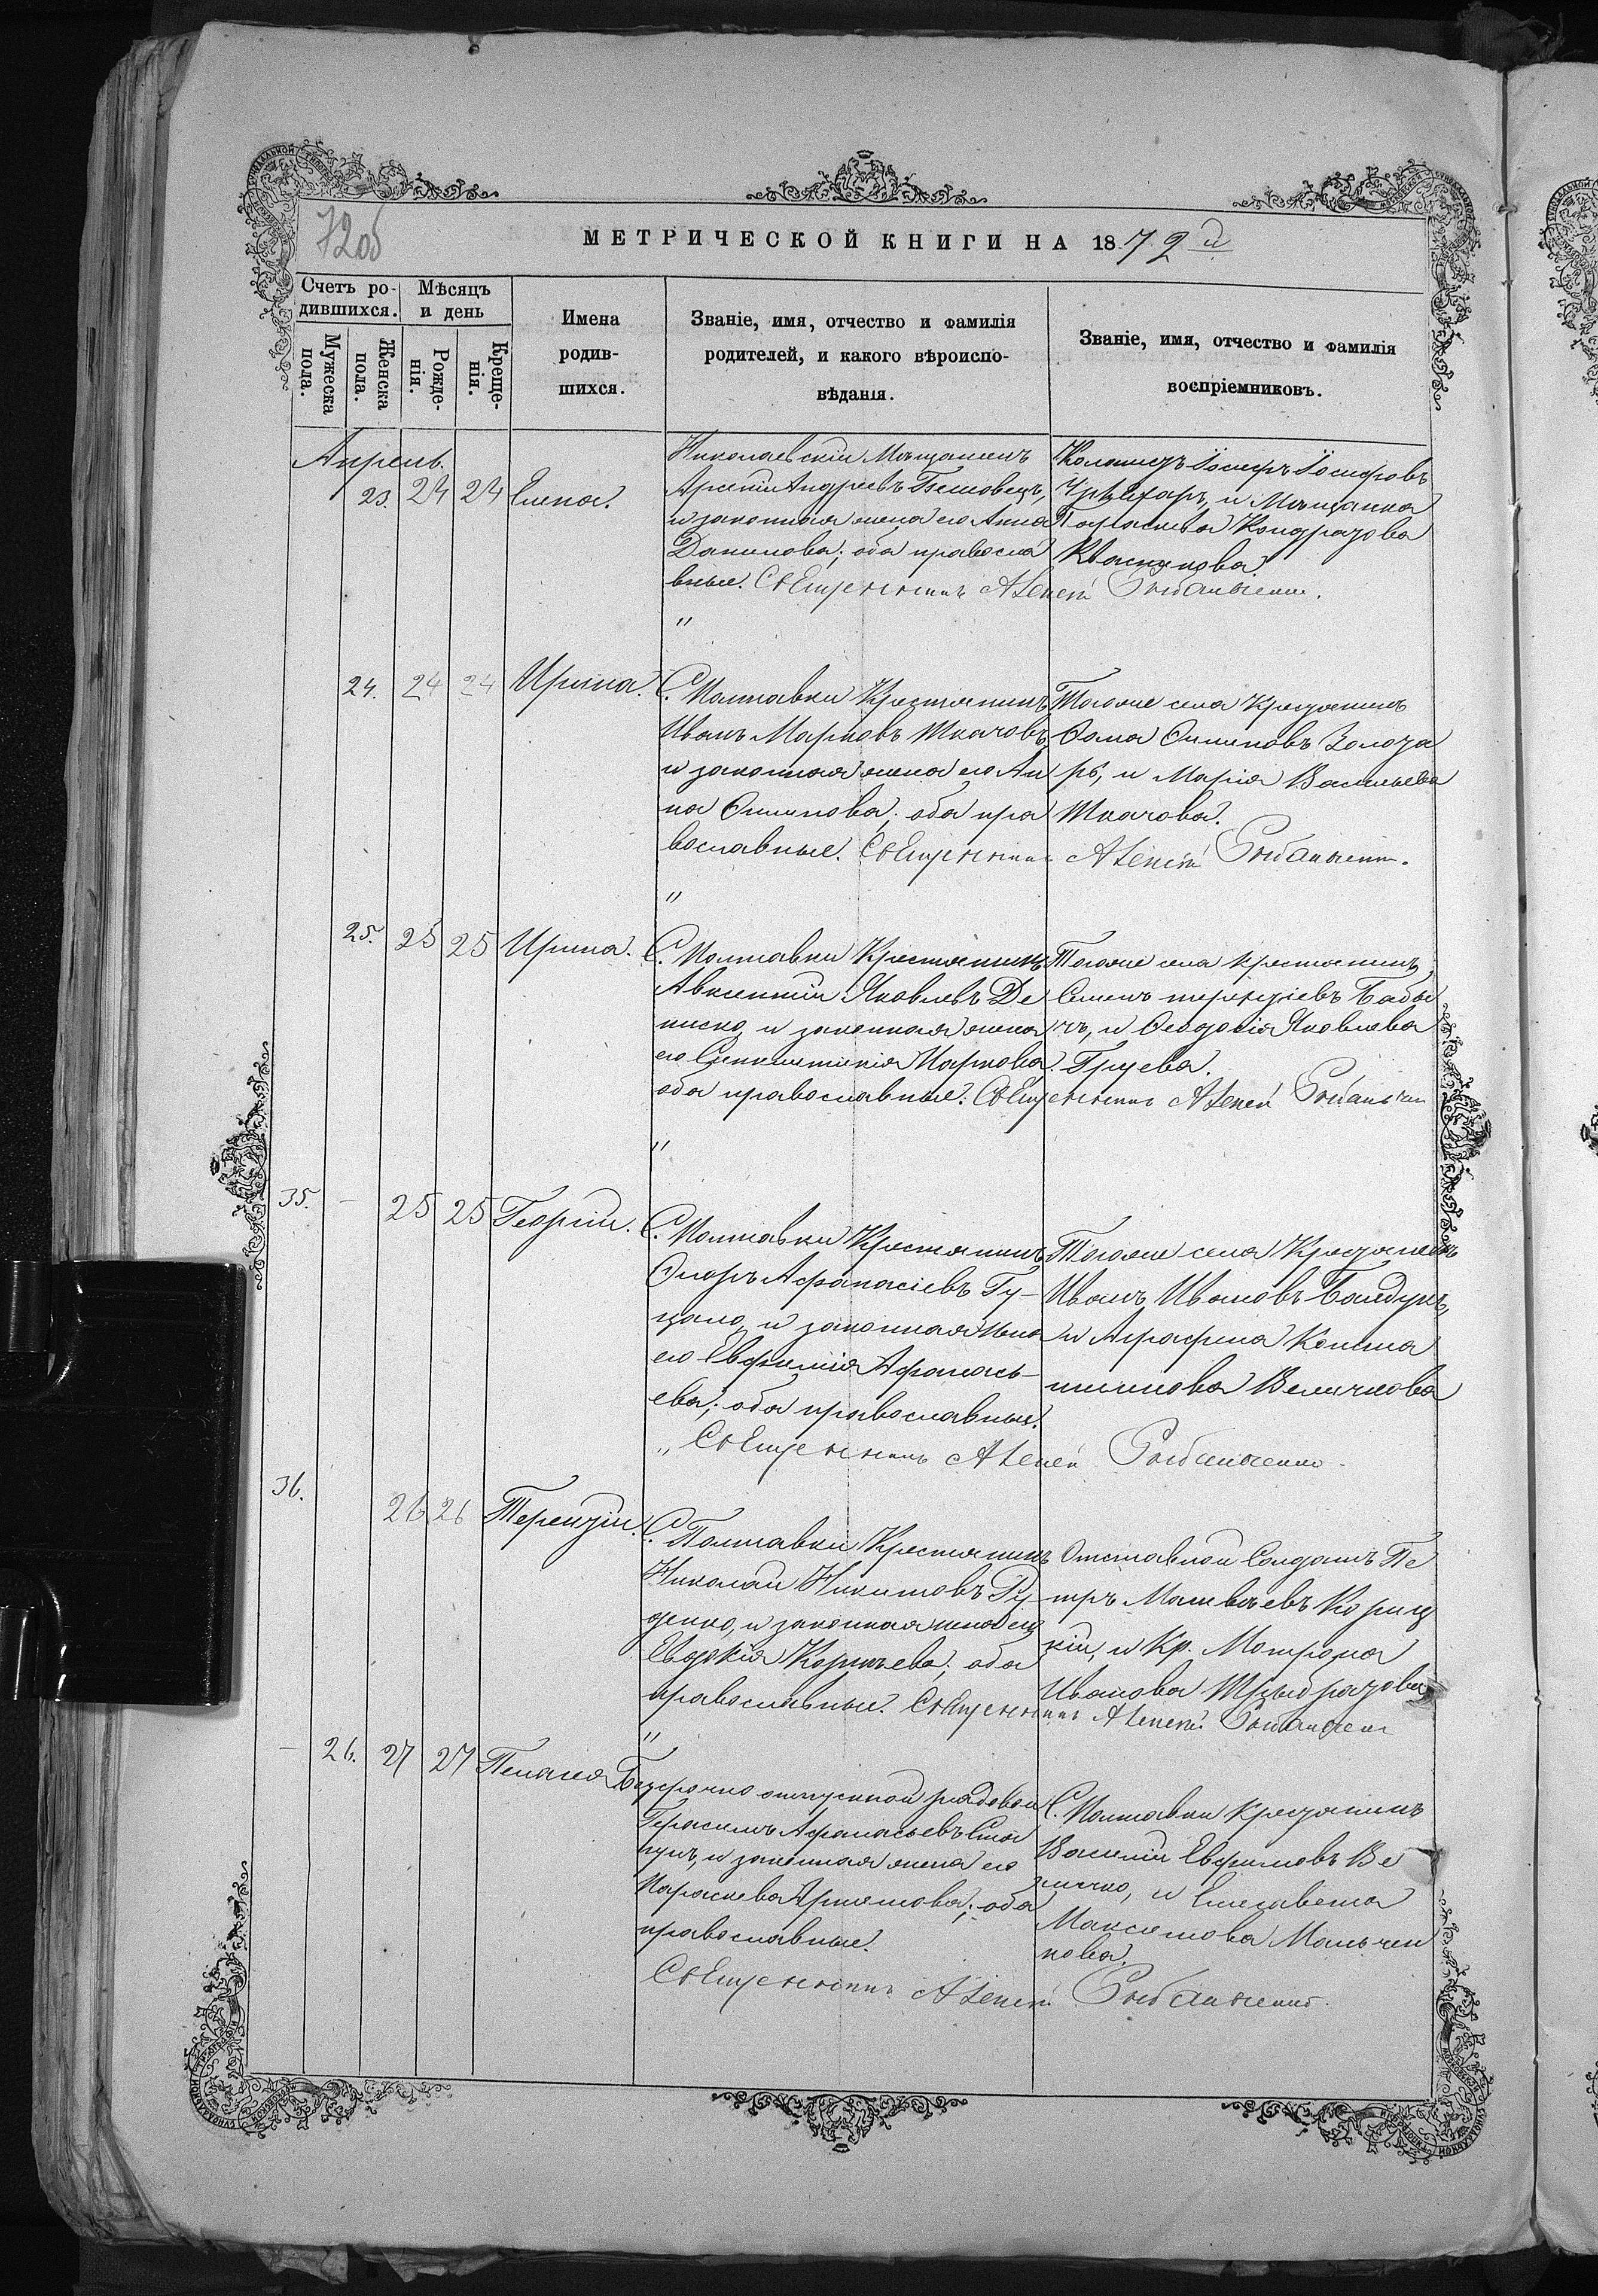 72об
МЕТРИЧЕСКОЙ КНИГИ НА 1872 й
Счетъ родившихся.
Мѣсяцъ и день
Мужеска пола.
Женска пола.
Рожденія.
Крещенія.
Имена
родив-
шихся.
Званіе, имя, отчество и фамилія
родителей, и какого вѣроиспо-
вѣданія.
Званіе, имя, отчество и фамилія
воспріемниковъ.
Апрель.
23. 24 24 Елена.
Николаевскій Мѣщанинъ
Арсеній Андреевъ
и законная жена его Анна
Данилова; оба правосла
вные. Священникъ Алексій Рыбальченко.
Колонистъ Іосифъ Іосифовъ
и Мѣщанка
Параскева Кондратова
Квасникова
"
24. 24 24 Ирина.
С. Полтавки Крестянинъ
Иванъ Марковъ Ткачовъ
и законная жена его Ан
на Филипова; оба пра
вославные. Священникъ Алексій Рыбальченко.
Тогоже села Крестянинъ
Фома Филиповъ Золота
рь, и Марія Васильева
Ткачова.
"
25. 25 25 Ирина.
С. Полтавки Крестянинъ
Авксентій Яковлевъ Де
ниско, и законная жена
его Синклитикія Маркова
оба православные. Священникъ Алексій Рыбальчен
Тогоже села крестянинъ
Семенъ терентіевъ Бабы
чъ, и Феодосія Яковлева
Груева.
"
35. — 25 25 Георгій.
С. Полтавки Крестянинъ
Флоръ Афанасіевъ Гу-
цало, и законная жена
его Евфимія Афанась-
ева; оба православные.
" Священникъ Алексій Рыбальченко
Тогоже села Крестянинъ
Иванъ Ивановъ Бандуръ
и Агрофина Конста
нтинова Величкова
36. 26 26 Терентій.
С. Полтавки Крестянинъ
Николай Никитовъ Ру-
денко, и законная жена его
Евдокія Корнѣева; оба
православные. Священникъ Алексій Рыбальчен
Отставной Солдатъ Пе
тръ Матвѣевъ Кориц
кій, и Кр. Мотрона
Иванова
"
— 26. 27 27 Пелагея
Безсрочно отпускной рядовой
Герасимъ Афанасьевъ Ста
и законная жена его
Параскева Артемова; оба
православные.
Священникъ Алексій Рыбальченко.
С. Полтавки крестянинъ
Василій Евфимовъ Ве
личко, и Елисавета
Максимова Мальчен
кова.